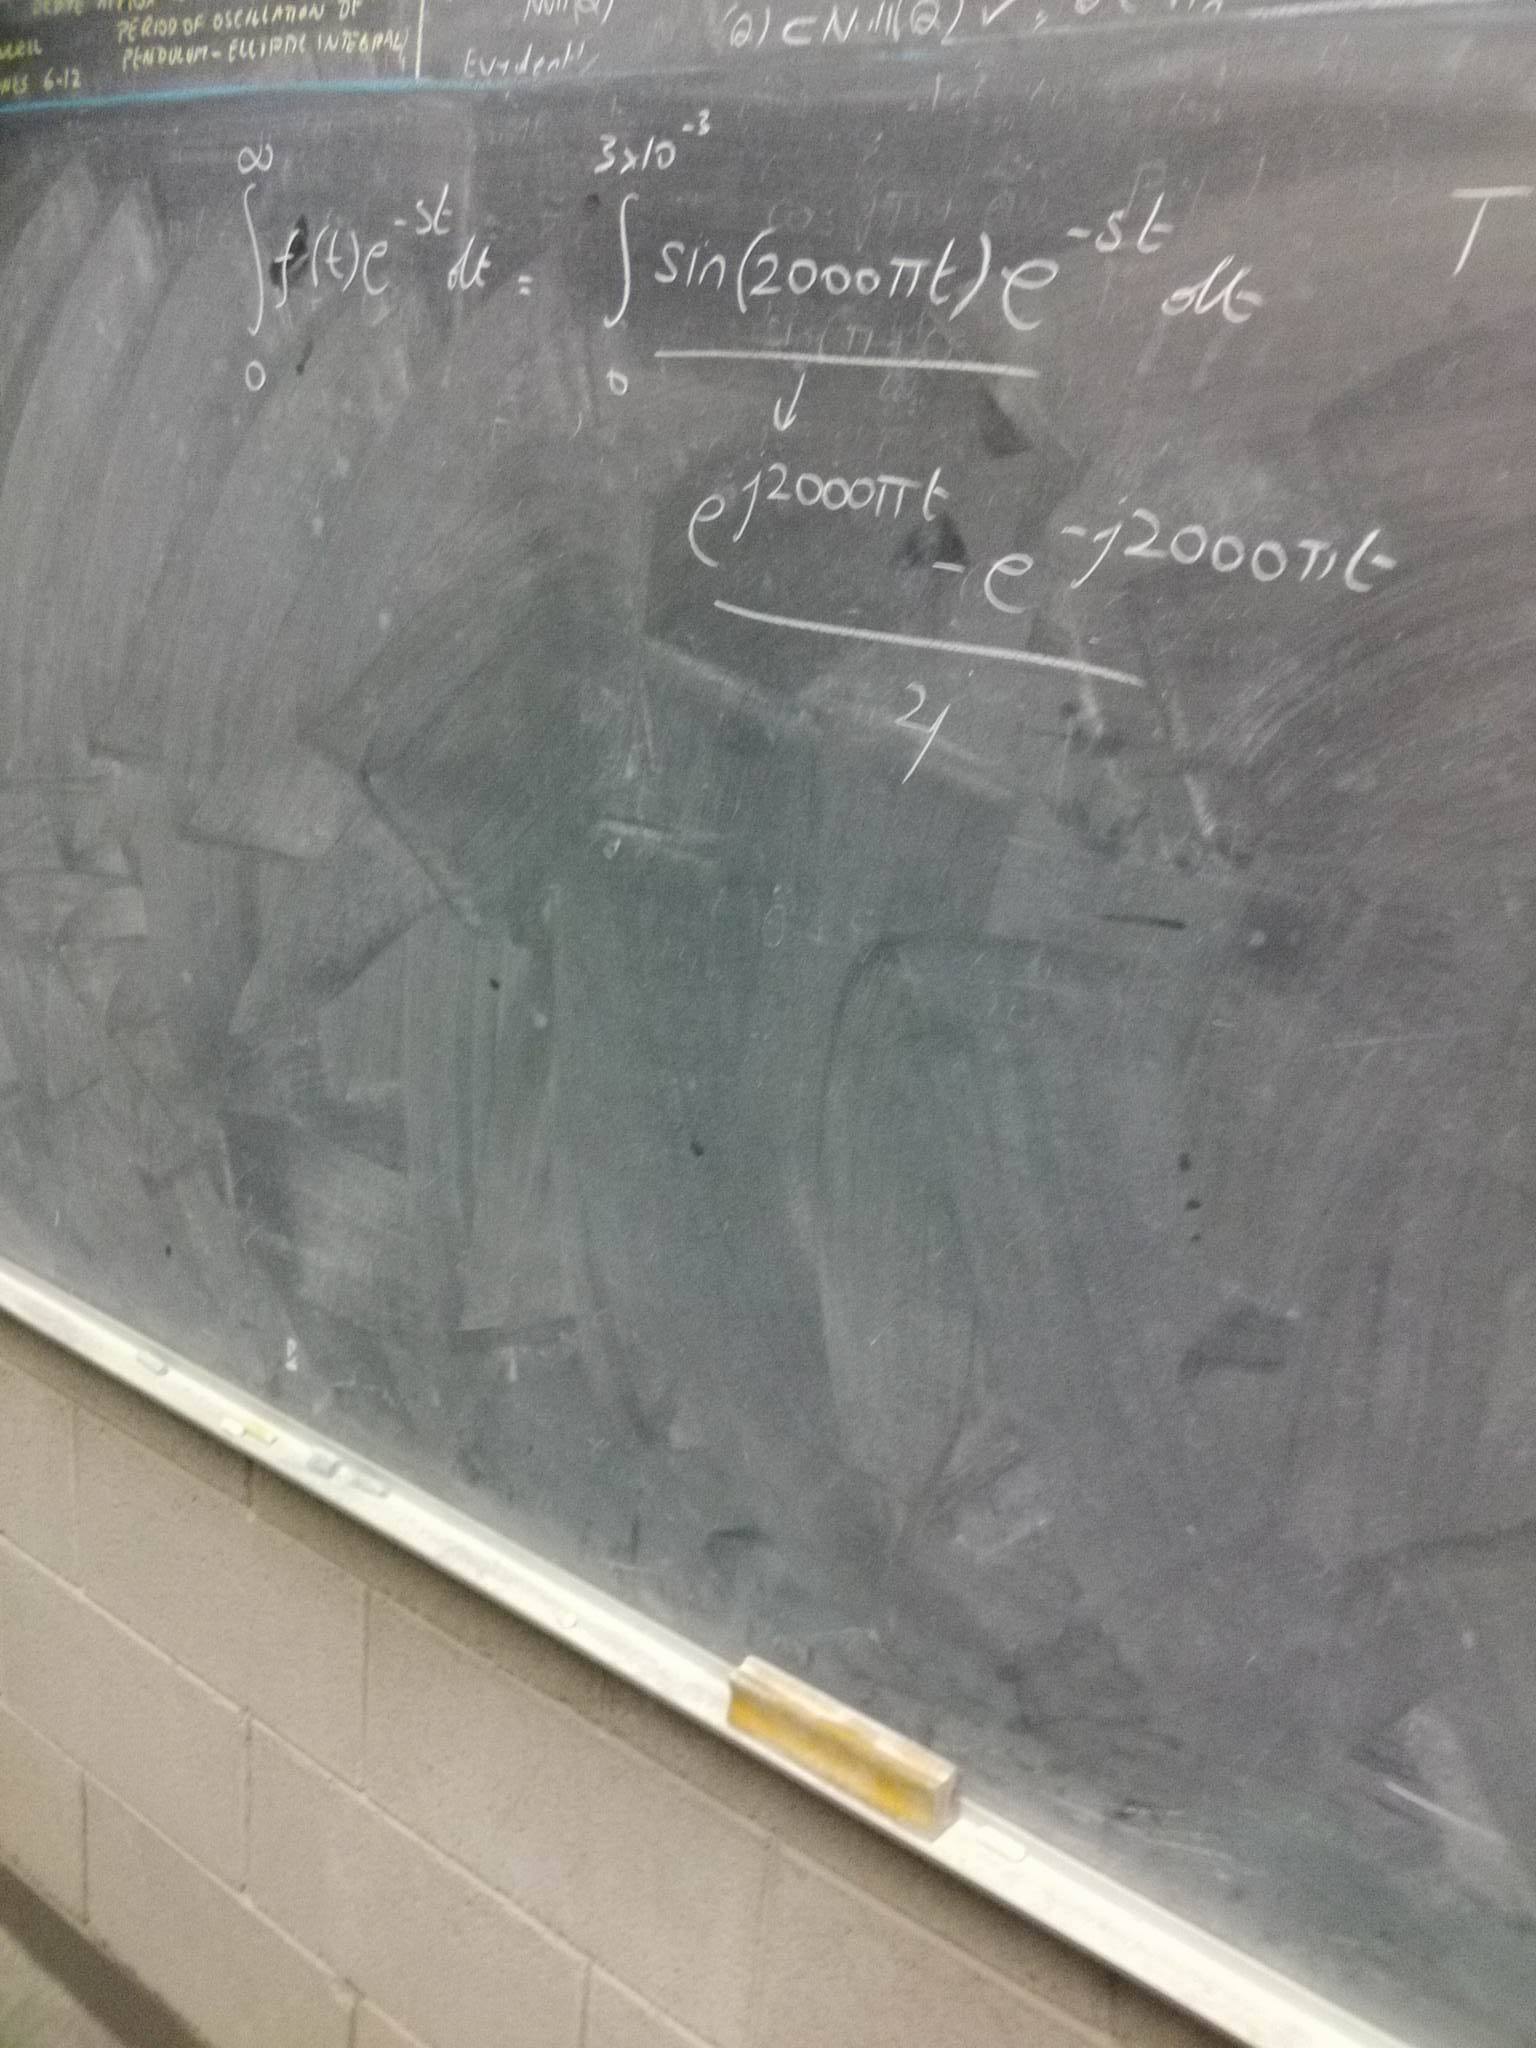 PERIOD OF OSCILLATION OF
PENDULUM-ELLIPTIC INTEGRAL)
6-12
Evidently
⊂ Null(Q) ✓
∫₀^∞ f(t)e^{-st} dt = ∫₀^{3×10^{-3}} sin(2000πt) e^{-st} dt
↓
e^{j2000πt} - e^{-j2000πt}
2j
T